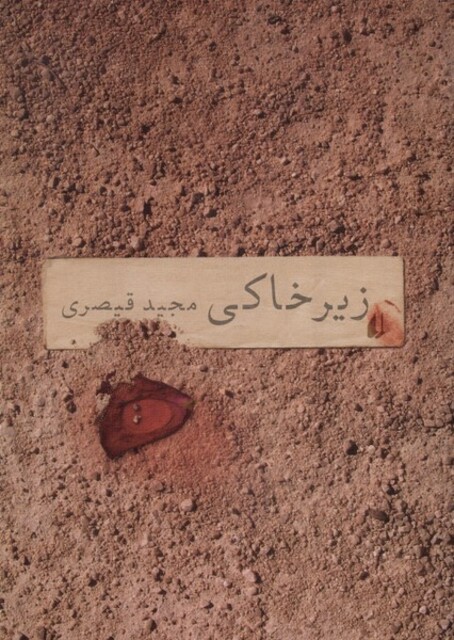 زیرخاکی مجید قیصری